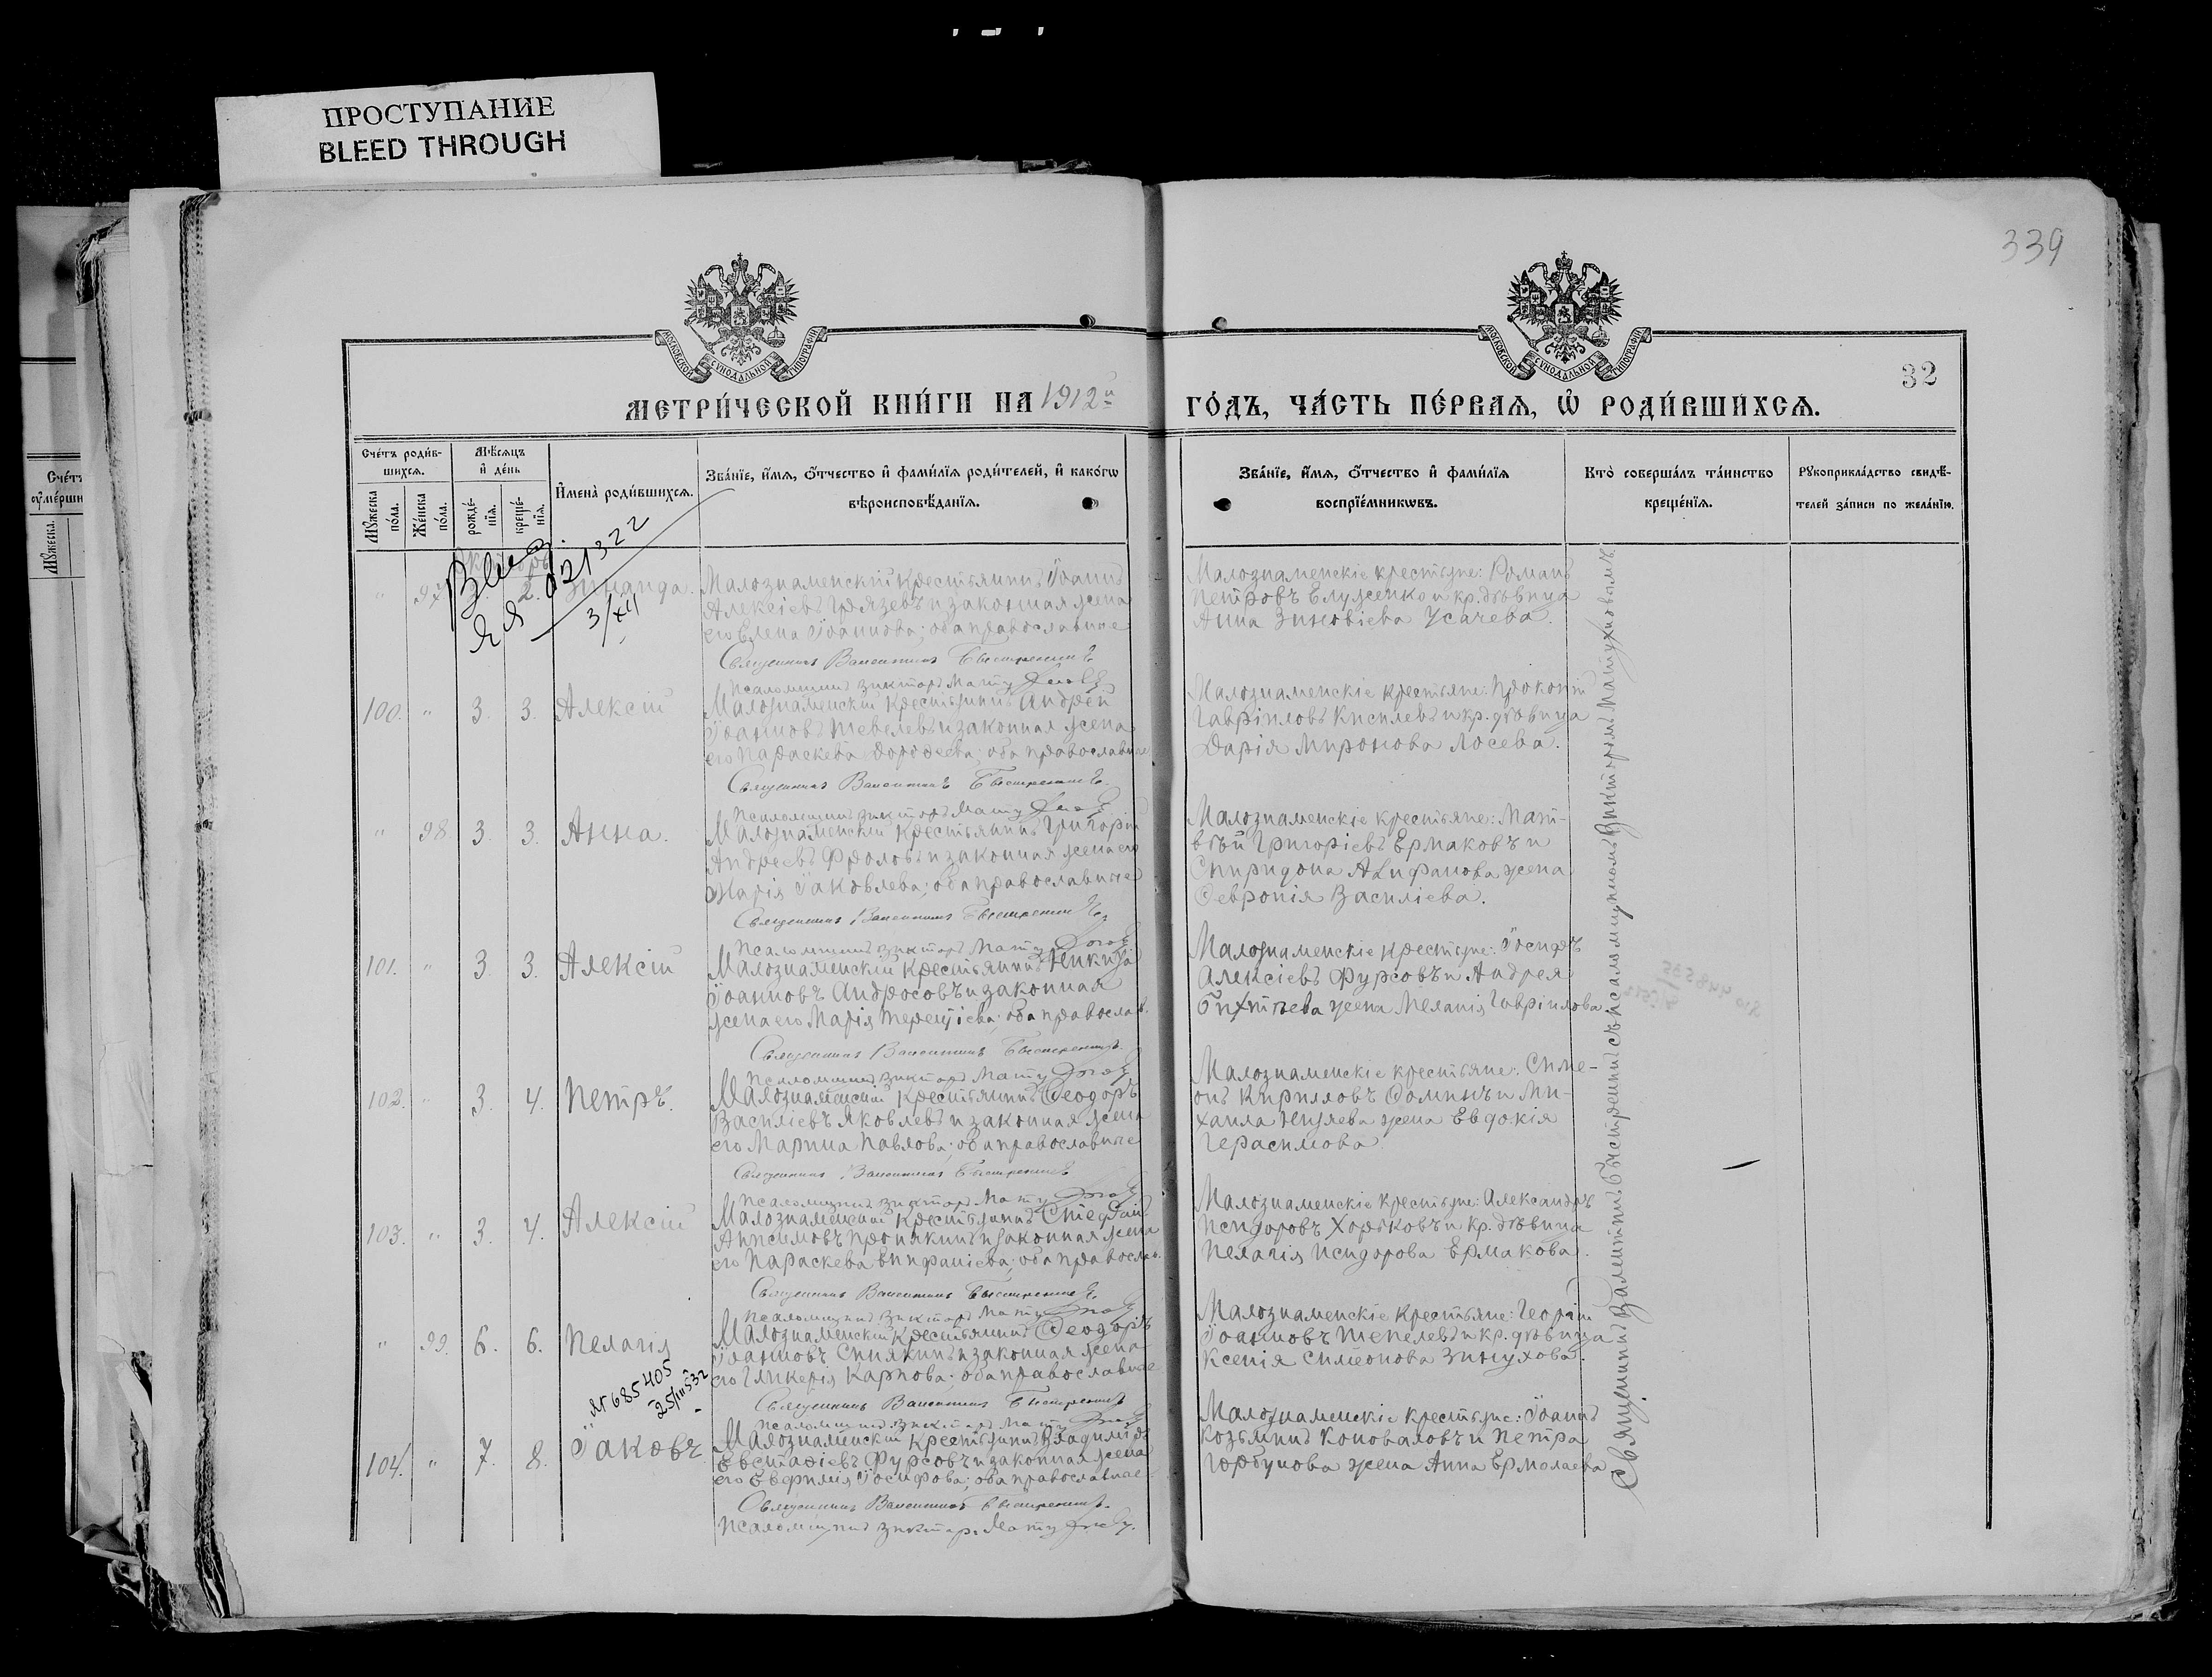 ПРОСТУПАНИЕ
BLEED THROUGH
339
32
МОСКОВСКОЙ СѴНОДАЛЬНОЙ ТИПОГРАФІИ
МОСКОВСКОЙ СѴНОДАЛЬНОЙ ТИПОГРАФІИ
МЕТРИ́ЧЕСКОЙ КНИ́ГИ НА 1912й ГО́ДЪ, ЧА́СТЬ ПЕ́РВАЯ, Ѡ РОДИ́ВШИХСЯ.
Сче́тъ роди́в-
шихся.
Мꙋжеска по́ла.
Же́нска по́ла.
Мѣ́сяцъ
и҆ де́нь
рожде́-
нїѧ.
креще́-
нїѧ.
И҆мена̀ роди́вшихся.
Зва́нїе, и҆́мя, ѻ҆́тчество и҆ фами́лїя роди́телей, и҆ како́гѡ
вѣроисповѣ́данїя.
Зва́нїе, и҆́мя, ѻ҆́тчество и҆ фами́лїя
воспрїе́мникѡвъ.
Кто̀ соверша́лъ та́инство
креще́нїя.
Рꙋкоприкла́дство свидѣ́-
телей за́писи по жела́нїю.
2. Зинаида.
Малознаменскій крестьянинъ Іоаннъ
Алексіевъ Грязевъ и законная жена
его Елена Іоаннова; оба православные
Священникъ Валентинъ Быстренинъ
Псаломщикъ Викторъ Мату
Малознаменскіе крестьяне: Романъ
Петровъ Елуженко и кр. дѣвица
Анна Зиновіева Усачева.
3/XII
100. " 3. 3. Алексій
Малознаменскій крестьянинъ Андрей
Іоанновъ Шевелевъ и законная жена
его Параскева Дороѳеева; оба православные
Священникъ Валентинъ Быстренинъ
Псаломщикъ Викторъ Мату
Малознаменскіе крестьяне: Прокопій
Гавріиловъ Киселевъ и кр. дѣвица
Дарія Миронова Лосева.
" 98. 3. 3. Анна.
Малознаменскій крестьянинъ Григорій
Андреевъ Фроловъ и законная жена его
Марія Іаковлева; оба православные
Священникъ Валентинъ Быстренинъ
Псаломщикъ Викторъ Мату
Малознаменскіе крестьяне: Мат-
вѣй Григоріевъ Ермаковъ и
Спиридона жена
Февронія Василіева.
101. " 3. 3. Алексій
Малознаменскій крестьянинъ Никита
Іоанновъ Андросовъ и законная
жена его Марія Терентіева; оба православ.
Священникъ Валентинъ Быстренинъ
Псаломщикъ Викторъ Мату
Малознаменскіе крестьяне: Іосифъ
Алексіевъ Фурсовъ и Андрея
жена Меланія Гавріилова.
102. " 3. 4. Петръ.
Малознаменскій крестьянинъ Ѳеодоръ
Василіевъ Яковлевъ и законная жена
его Марина Павлова; оба православные
Священникъ Валентинъ Быстренинъ
Псаломщикъ Викторъ Мату
Малознаменскіе крестьяне: Симе-
онъ Кирилловъ Ѳоминъ и Ми-
хаила жена Евдокія
Герасимова
103. " 3. 4. Алексій
Малознаменскій крестьянинъ Стефанъ
Анисимовъ Пронякинъ и законная жена
его Параскева Епифаніева; оба православ.
Священникъ Валентинъ Быстренинъ
Псаломщикъ Викторъ Мату
Малознаменскіе крестьяне: Александръ
Исидоровъ Хорьковъ и кр. дѣвица
Пелагія Исидорова Ермакова.
" 99. 6. 6. Пелагія
Малознаменскій крестьянинъ Ѳеодоръ
Іоанновъ Синякинъ и законная жена
его Гликерія Карпова; оба православные
Священникъ Валентинъ Быстренинъ
Псаломщикъ Викторъ Мату
Малознаменскіе крестьяне: Георгій
Іоанновъ Шепелевъ и кр. дѣвица
Ксенія Симеонова Зинухова.
№ 685405
104. " 7. 8. Іаковъ
Малознаменскій крестьянинъ Владиміръ
Евстаѳіевъ Фурсовъ и законная жена
его Евфимія Іосифова; оба православные
Священникъ Валентинъ Быстренинъ
Псаломщикъ Викторъ Мату
Малознаменскіе крестьяне: Іоаннъ
Козьминъ Коноваловъ и Петра
Горбунова жена Анна Ермолаева
Священникъ Валентинъ Быстренинъ съ псаломщикомъ Викторомъ Матуховымъ